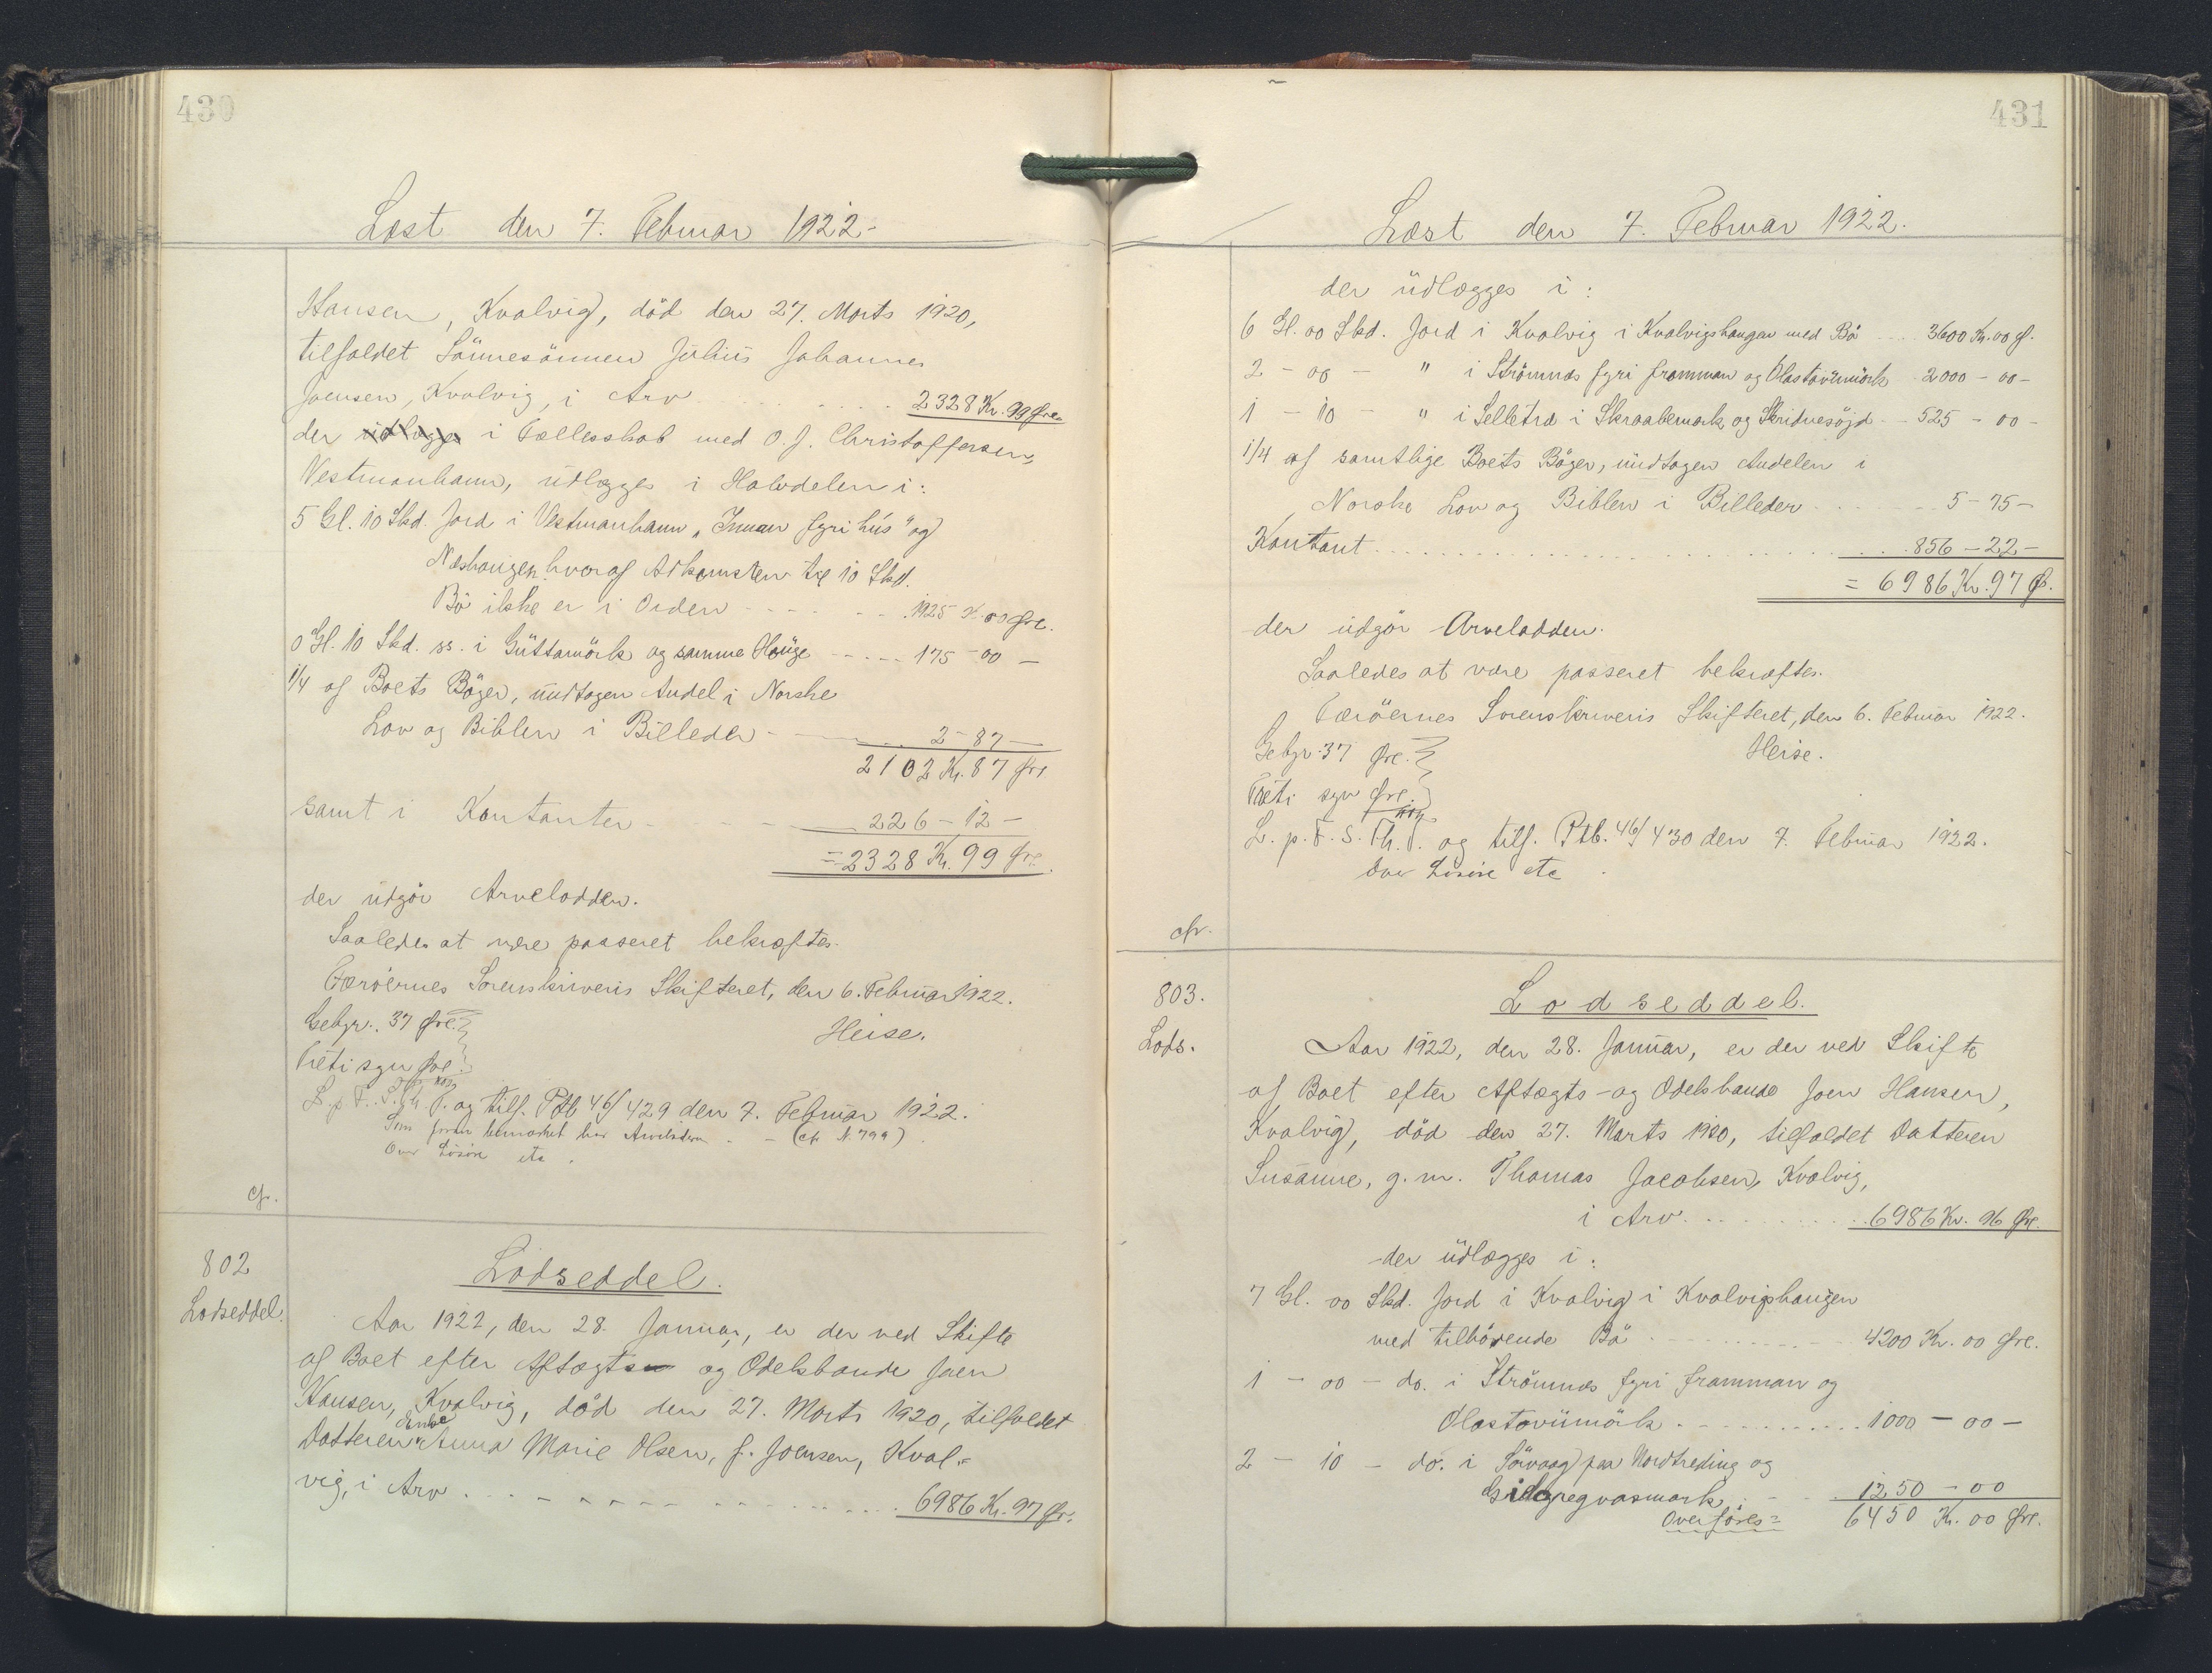 430
Læst den 7. Februar 1922.-
Hansen, Kvalvig, död den 27. Marts 1920,
tilfaldet Sönnesönnen Julius Johannes
Joensen, Kvalvig, i Arv . . . . . . 2328 Kr. 99 Øre
der udlægges i Fællesskab med O. J. Christoffersen,
Vestmanhavn, udlægges i Halvdelen i:
5 Gl. 10 Skd. Jord i Vestmanhavn, "Innan fyri hús" og
Neshaugen hvoraf Adkomsten til 10 Skd.
Bö ikke er i Orden - - - - - 1925 Kr. 00 Øre.
0 Gl. 10 Skd. ss. i Guttamörk og samme Hauge - - - - - 175 - 00 -
1/4 af Boets Böger, undtagen Andel i Norske
Lov og Biblen i Billeder - - - 2 - 87 -
2102 Kr. 87 Øre
samt i Kontanter - - - 226 - 12 -
= 2328 Kr. 99 Øre.
der udgör Arvelodden.
Saaledes at være passeret bekræftes.
Færöernes Sorenskriveris Skifteret, den 6. Februar 1922.
Gebyr.. 37 Øre.
Heise.
Treti syv Øre.
L. p. F. S. Th. T. og tilf. Ptb 46/429 den 7. Februar 1922.
Som foran bemærket har Arveladeren - - (cfr N. 799)
Over Lösöre etc.
cfr.
802
Lodseddel.
Lodseddel.
Aar 1922, den 28. Januar, er der ved Skifte
af Boet efter Aftægts og Odelsbonde Joen
Hansen, Kvalvig, död den 27. Marts 1920, tilfaldet
Datteren Enke Anna Marie Olsen, f. Joensen, Kval-
vig, i Arv . . . - - - - - . . . . . . 6986 Kr. 97 Ør.
431
Læst den 7. Februar 1922.
der udlægges i:
6 Gl. 00 Skd. Jord i Kvalvig i Kvalvigshaugen med Bö . . . . 3600 Kr. 00 Ø.
2 - 00 - " i Strömnæs fyri framman og Olastovumörk 2000 - 00 -
1 - 10 - " i Selletræ i Skraabemørk og Skridnesöjd - - 525 - 00 -
1/4 af samtlige Boets Böger, undtagen Andelen i
Norske Lov og Biblen i Billeder . . . . . . 5 - 75 -
Kontant . . . . . . . . . . . . 856 - 22 -
= 6986 Kr. 97 Ø.
der udgör Arvelodden.
Saaledes at være passeret bekræftes.
Færöernes Sorenskriveris Skifteret, den 6. Februar 1922.
Gebyr 37 Øre.
Heise.
Treti syv Øre.
L. p. F. S. Th. T. og tilf. Ptb. 46/430 den 7. Februar 1922.
Over Lösöre etc
cfr.
803.
Lods.
Lodseddel.
Aar 1922, den 28. Januar, er der ved Skifte
af Boet efter Aftægts- og Odelsbonde Joen Hansen,
Kvalvig, död den 27. Marts 1920, tilfaldet Datteren
Susanne, g. m. Thomas Jacobsen, Kvalvig,
i Arv. . . . . . . . . 6986 Kr. 96 Øre.
der udlægges i:
7 Gl. 00 Skd. Jord i Kvalvig i Kvalvigshaugen
med tilhörende Bö . - - - - - - 4200 Kr. 00 Øre.
1 - 00 - do. i Strömnæs fyri framman og
Olastovumörk . - - - - . . . . . 1000 - 00 -
2 - 10 - do. i Sörvaag paa Nordtreding og
- - 1250 - 00
Overföres = 6450 Kr. 00 Øre.